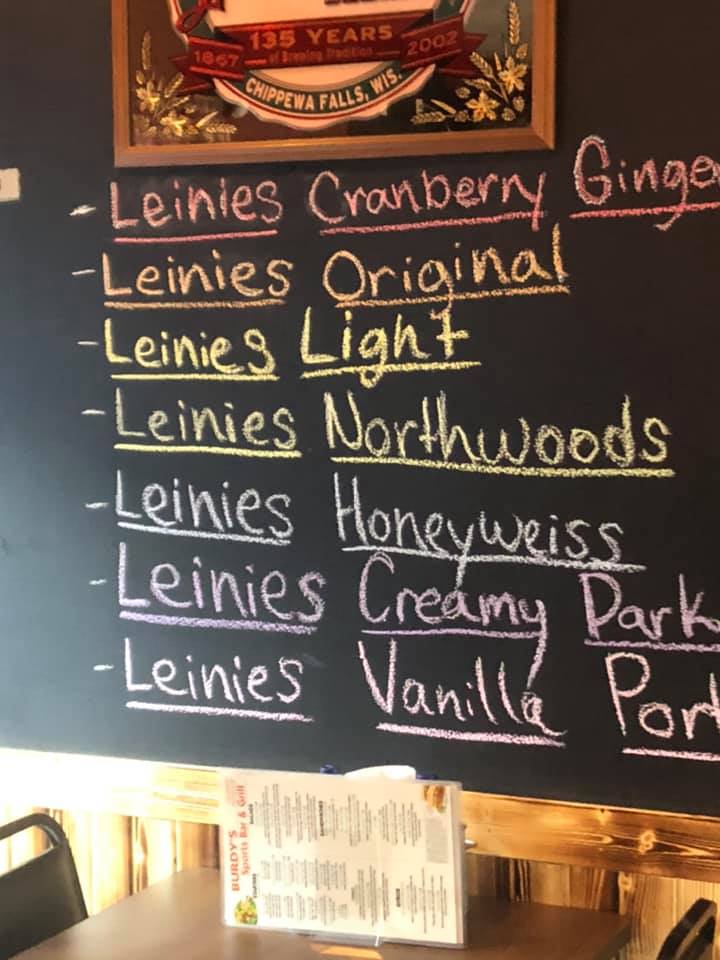 135 YEARS
1867 of Brewing Tradition 2002
CHIPPEWA FALLS, WIS.
- Leinies Cranberry Ginge
- Leinies Original
- Leinies Light
- Leinies Northwoods
- Leinies Honeyweiss
- Leinies Creamy Dark
- Leinies Vanilla Port
BURDY'S
Sports Bar & Grill